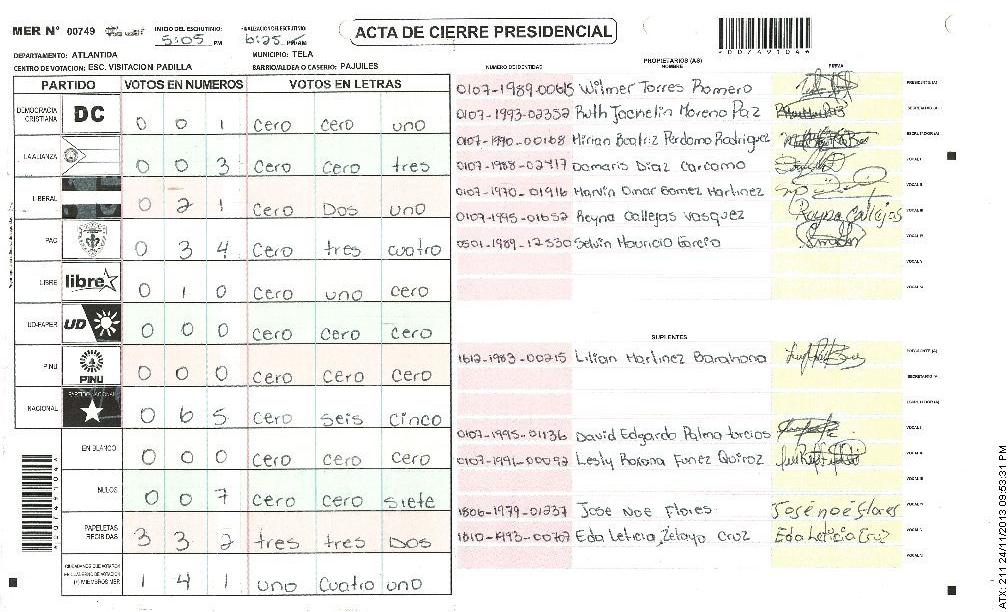 MER N° 00749
INICIO DEL ESCRUTINIO:
5:05 PM
6:25 PM/AM
ACTA DE CIERRE PRESIDENCIAL
*00749104*
DEPARTAMENTO: ATLANTIDA
MUNICIPIO: TELA
CENTRO DE VOTACION: ESC. VISITACION PADILLA
BARRIO/ALDEA O CASERIO: PAJUILES
PARTIDO VOTOS EN NUMEROS VOTOS EN LETRAS
DEMOCRACIA CRISTIANA DC 0 0 1 Cero Cero uno
LA ALIANZA 0 0 3 Cero Cero tres
LIBERAL 0 2 1 Cero Dos uno
PAC 0 3 4 Cero tres cuatro
LIBRE libre 0 1 0 Cero uno cero
UD-FAPER UD 0 0 0 Cero Cero Cero
PINU PINU 0 0 0 Cero Cero Cero
NACIONAL 0 6 5 Cero seis cinco
EN BLANCO 0 0 0 Cero Cero Cero
NULOS 0 0 7 Cero Cero Siete
PAPELETAS RECIBIDAS 3 3 2 tres tres Dos
(+) MIEMBROS MER 1 4 1 uno Cuatro uno
NUMERO DE IDENTIDAD
PROPIETARIOS (AS)
NOMBRE
FIRMA
0107-1989-00615 Wilmer Torres Romero
0107-1993-02352 Ruth Jacnelin Moreno Paz
0107-1990-00168 Mirian Beatriz Perdomo Rodriguez
0107-1988-02417 Damaris Diaz Carcamo
0107-1970-01916 Marvin Omar Gomez Martinez
0107-1995-01652 Reyna Callejas Vasquez Reyna Callejas
0501-1989-12530 Selvin Mauricio Garcia
SUPLENTES
1612-1983-00215 Lilian Martinez Barahona
0107-1995-01136 David Edgardo Palma
0107-1991-00092 Lesly Roxana Funez Quiroz
1806-1979-01237 Jose Noe Flores José noé flores
1810-1993-00767 Eda Leticia Zelaya Cruz Eda Leticia Cruz
ATX: 211 24/11/2013 09:53:31 PM